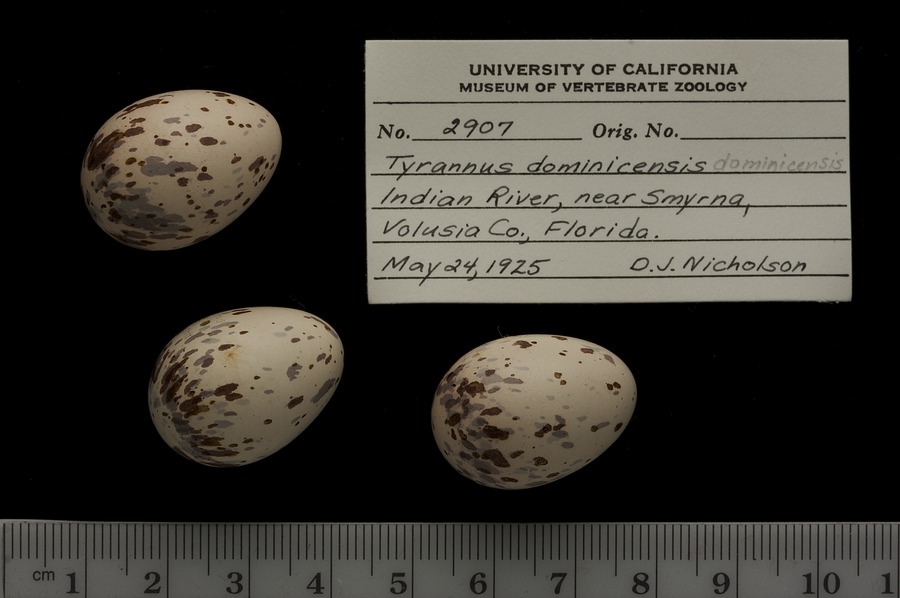 UNIVERSITY OF CALIFORNIA
MUSEUM OF VERTEBRATE ZOOLOGY
No. 2907 Orig. No.
Tyrannus dominicensis dominicensis
Indian River, near Smyrna,
Volusia Co., Florida.
May 24, 1925 D.J. Nicholson
cm 1 2 3 4 5 6 7 8 9 10 1